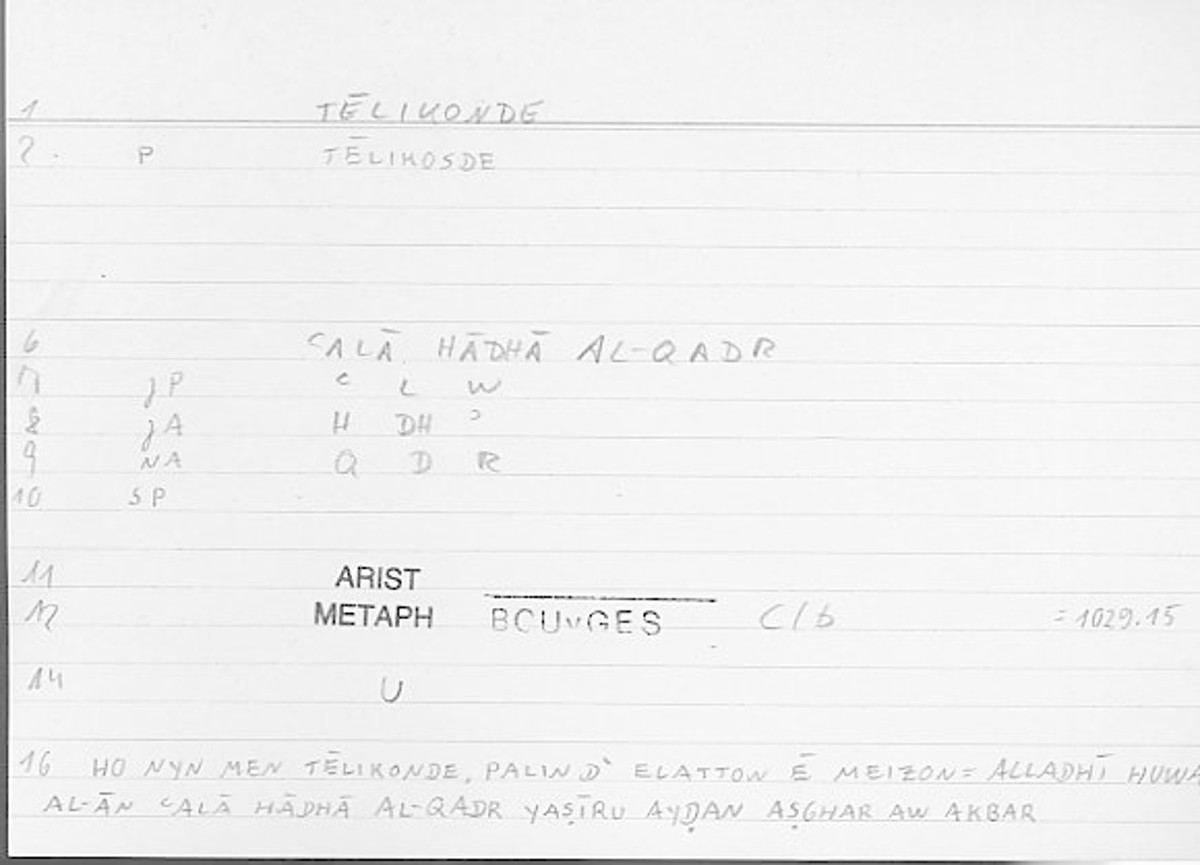 1 TĒLIKONDE
2. P TĒLIKOSDE
6 ʿALĀ HĀDHĀ AL-QADR
7 jP ʿ L W
8 jA H DH ʾ
9 NA Q D R
10 SP
11 ARIST
12 METAPH BOUYGES C/b = 1029.15
14 U
16 HO NYN MEN TĒLIKONDE, PALIN D' ELATTON Ē MEIZON = ALLADHĪ HUWA
AL-ĀN ʿALĀ HĀDHĀ AL-QADR YAṢĪRU AYḌAN AṢGHAR AW AKBAR